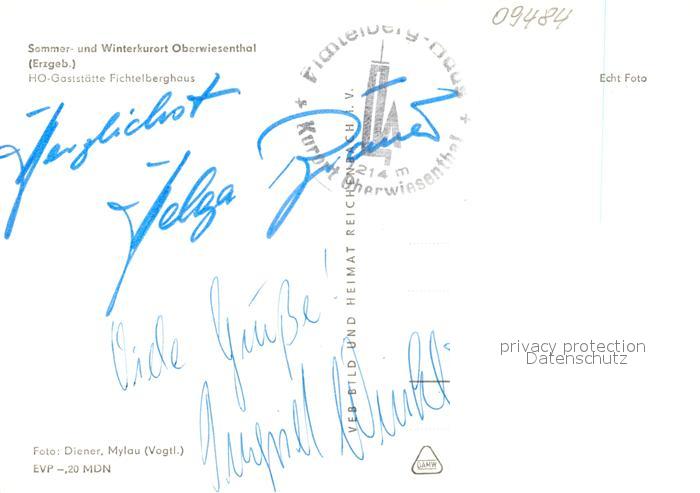 09484
Sommer- und Winterkurort Oberwiesenthal
(Erzgeb.)
HO-Gaststätte Fichtelberghaus
Echt Foto
Fichtelberg-Haus
1214 m
Kurort Oberwiesenthal
Herzlichst
Helga
Viele Grüße!
VEB BILD UND HEIMAT REICHENBACH I. V.
privacy protection
Datenschutz
Foto: Diener, Mylau (Vogtl.)
EVP –,20 MDN
DAMW